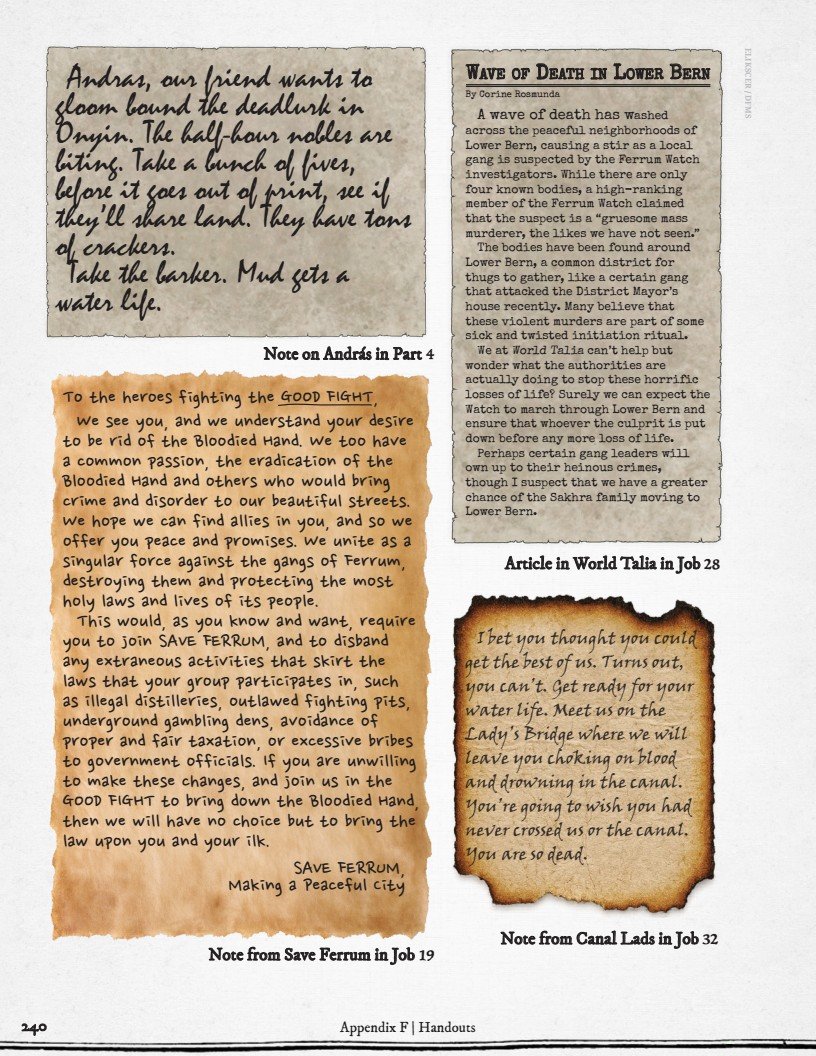 Andras, our friend wants to
gloom bound the deadlurk in
Onyin. The half-hour nobles are
biting. Take a bunch of fives,
before it goes out of print, see if
they'll share land. They have tons
of crackers.
Take the barker. Mud gets a
water life.
Note on András in Part 4
To the heroes fighting the GOOD FIGHT,
We see you, and we understand your desire
to be rid of the Bloodied Hand. We too have
a common passion, the eradication of the
Bloodied Hand and others who would bring
crime and disorder to our beautiful streets.
We hope we can find allies in you, and so we
offer you peace and promises. We unite as a
singular force against the gangs of Ferrum,
destroying them and protecting the most
holy laws and lives of its people.
This would, as you know and want, require
you to join SAVE FERRUM, and to disband
any extraneous activities that skirt the
laws that your group participates in, such
as illegal distilleries, outlawed fighting pits,
underground gambling dens, avoidance of
proper and fair taxation, or excessive bribes
to government officials. If you are unwilling
to make these changes, and join us in the
GOOD FIGHT to bring down the Bloodied Hand,
then we will have no choice but to bring the
law upon you and your ilk.
SAVE FERRUM,
Making a Peaceful City
Note from Save Ferrum in Job 19
WAVE OF DEATH IN LOWER BERN
By Corine Rosmunda
A wave of death has washed
across the peaceful neighborhoods of
Lower Bern, causing a stir as a local
gang is suspected by the Ferrum Watch
investigators. While there are only
four known bodies, a high-ranking
member of the Ferrum Watch claimed
that the suspect is a “gruesome mass
murderer, the likes we have not seen.”
The bodies have been found around
Lower Bern, a common district for
thugs to gather, like a certain gang
that attacked the District Mayor's
house recently. Many believe that
these violent murders are part of some
sick and twisted initiation ritual.
We at World Talia can't help but
wonder what the authorities are
actually doing to stop these horrific
losses of life? Surely we can expect the
Watch to march through Lower Bern and
ensure that whoever the culprit is put
down before any more loss of life.
Perhaps certain gang leaders will
own up to their heinous crimes,
though I suspect that we have a greater
chance of the Sakhra family moving to
Lower Bern.
Article in World Talia in Job 28
I bet you thought you could
get the best of us. Turns out,
you can't. Get ready for your
water life. Meet us on the
Lady's Bridge where we will
leave you choking on blood
and drowning in the canal.
You're going to wish you had
never crossed us or the canal.
You are so dead.
Note from Canal Lads in Job 32
240
Appendix F | Handouts